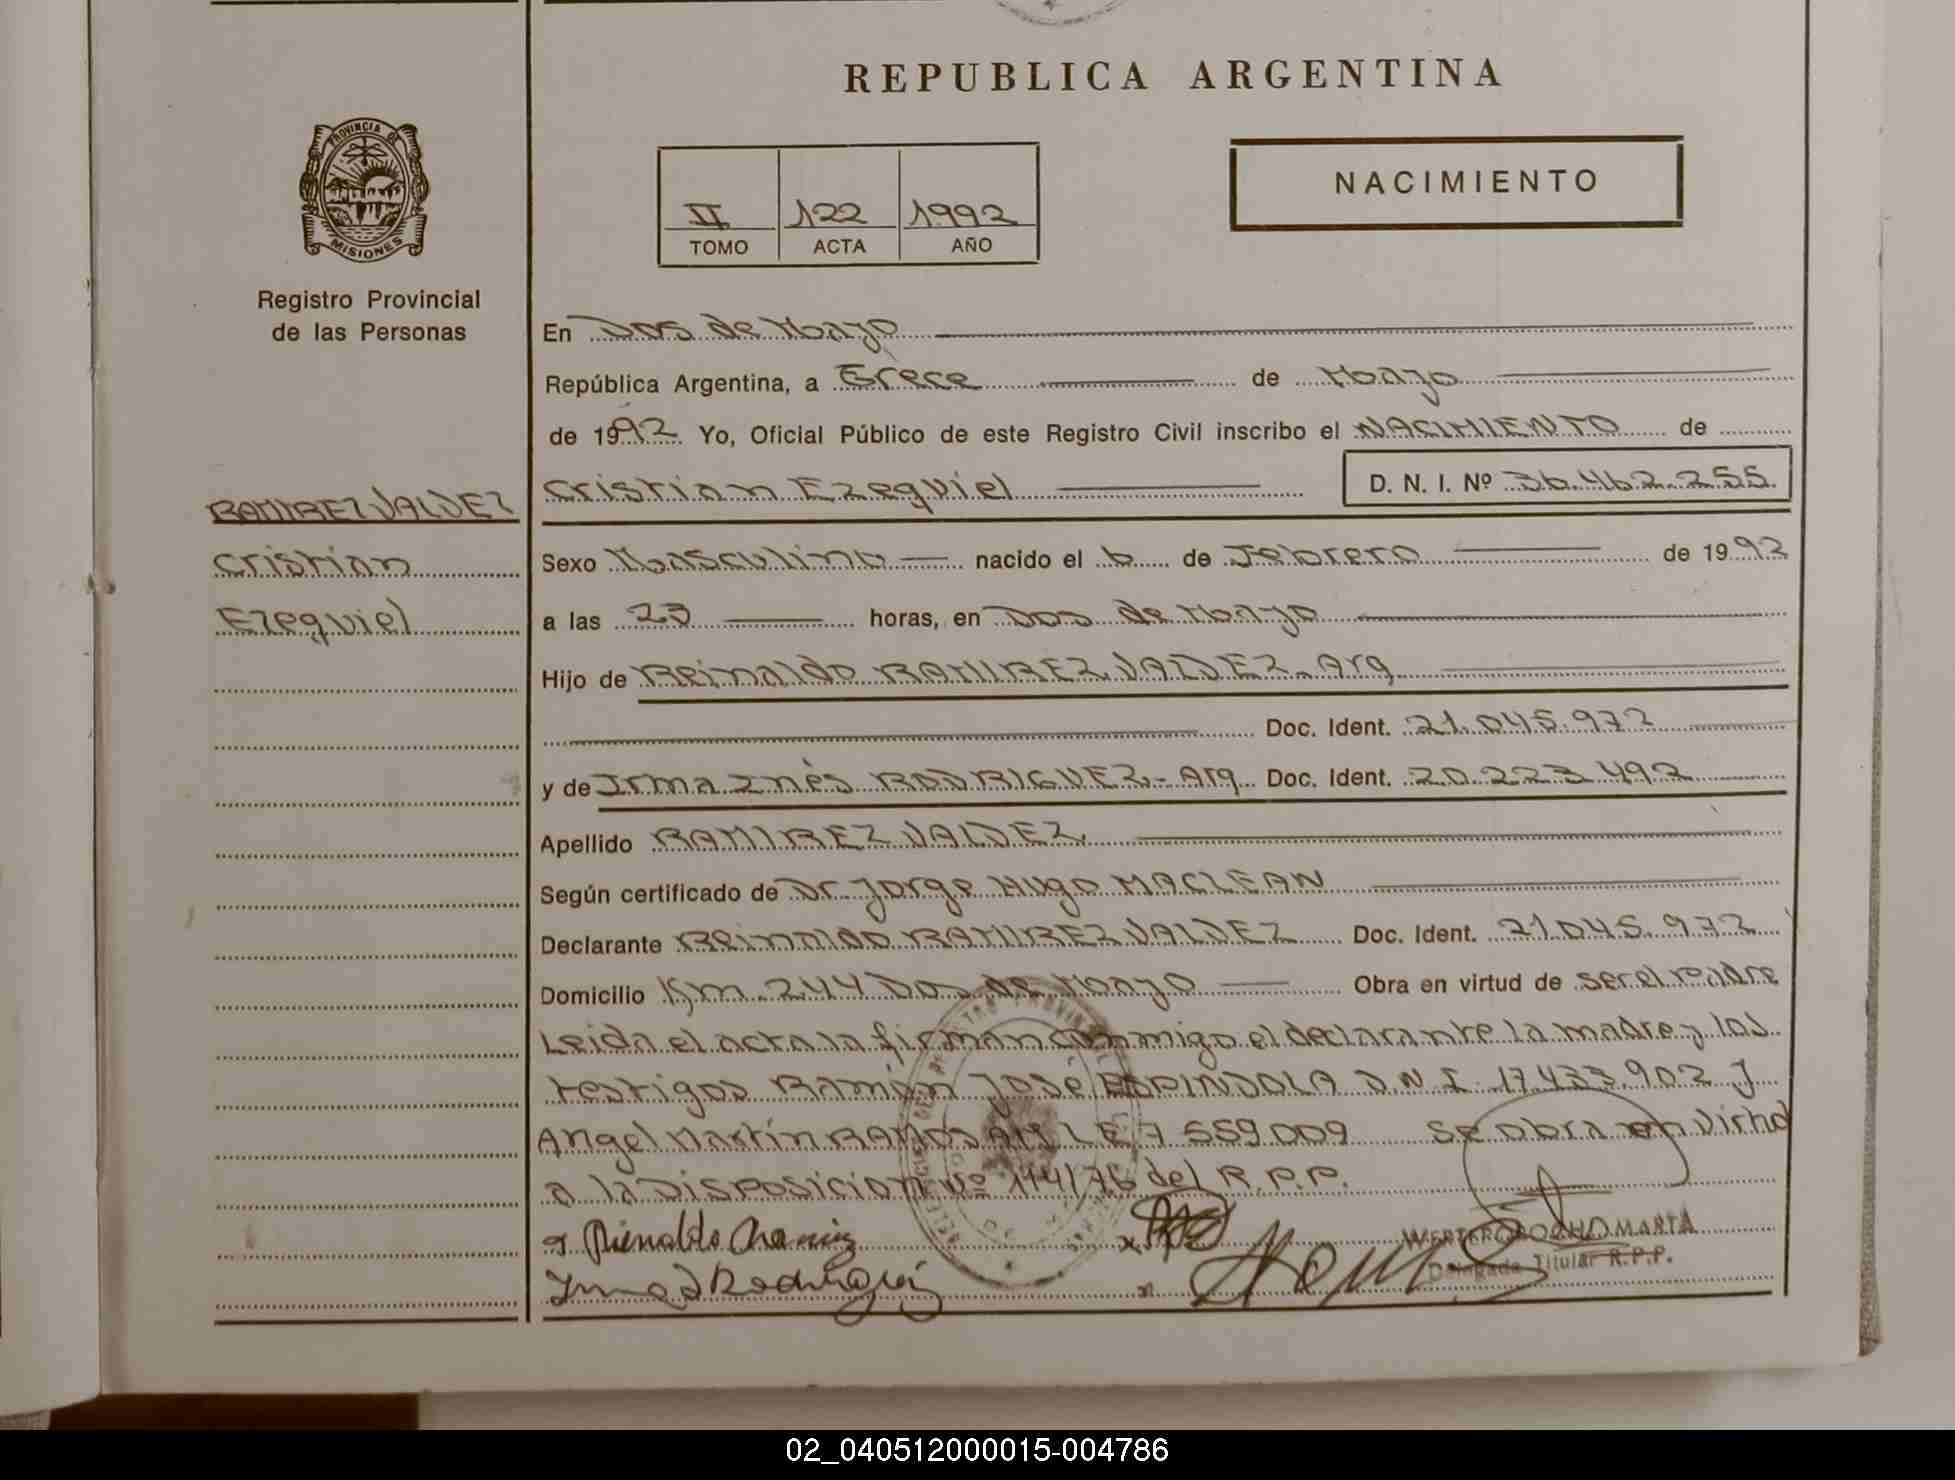 REPUBLICA ARGENTINA
PROVINCIA DE
MISIONES
Registro Provincial
de las Personas
II 122 1992
TOMO ACTA AÑO
NACIMIENTO
En Dos de Mayo
República Argentina, a Trece de Mayo
de 1992 Yo, Oficial Público de este Registro Civil inscribo el NACIMIENTO de
Cristian Ezequiel D. N. I. Nº 36.462.255.
RAMIREZ VALDEZ
Cristian
Ezequiel
Sexo Masculino nacido el 6 de Febrero de 1992
a las 23 horas, en Dos de Mayo
Hijo de Reinaldo RAMIREZ VALDEZ. Arg
Doc. Ident. 21.045.972
y de Irma Inés RODRIGUEZ.- Arg Doc. Ident. 20.223.492
Apellido RAMIREZ VALDEZ.
Según certificado de Dr. Jorge Hugo MACLEAN
Declarante Reinaldo RAMIREZ VALDEZ Doc. Ident. 21.045.972
Domicilio Km. 244 Dos de Mayo Obra en virtud de ser el padre
Leida el acta la firman conmigo el declarante la madre y los
testigos Ramón José ESPINDOLA D.N.I. 17.433.902 y
Angel Martín RAMOS Arg LE 7.559.009 se obra en virtud
a la Disposición Nº 174/76 del R.P.P.
Rienaldo Ramirez
Irma I Rodriguez
MARTA
Delegada Titular R.P.P.
02_040512000015-004786